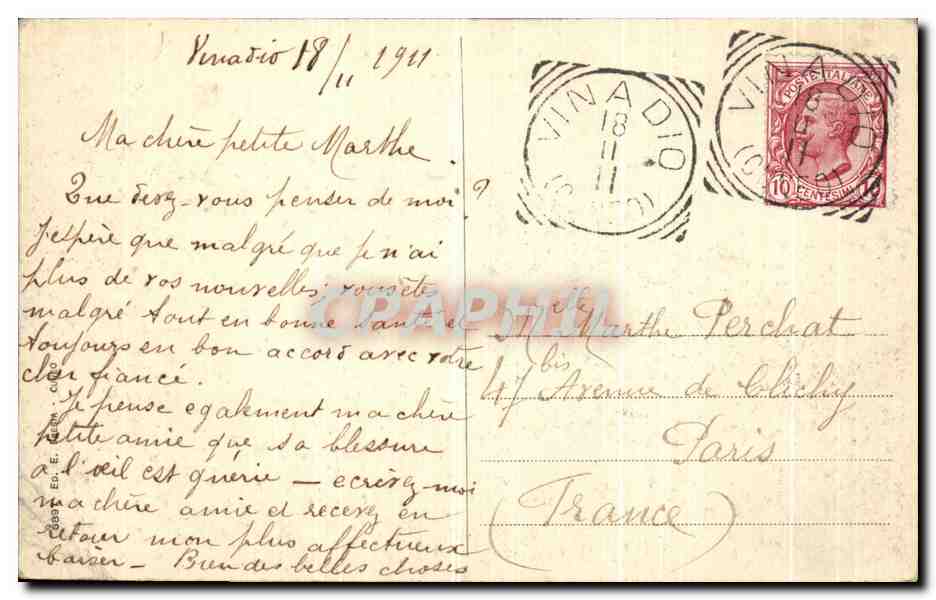 Vinadio 18/11 1911
Ma chère petite Marthe.
Que devez-vous penser de moi ?
J'espère que malgré que je n'ai
plus de vos nouvelles, vous êtes
malgré tout en bonne santé et
toujours en bon accord avec votre
cher fiancé.
Je pense egalement ma chère
petite amie que sa blessure
a l'œil est guérie — ecrivez-moi
ma chère amie et recevez en
retour mon plus affectueux
baiser - Bien des belles choses
VINADIO
18
11
11
(CUNEO)
VINADIO
18
11
POSTE ITALIANE
10 CENTESIMI 10
Mlle Marthe Perchat
47 bis Avenue de Clichy
Paris
(France)
CPAPHIL